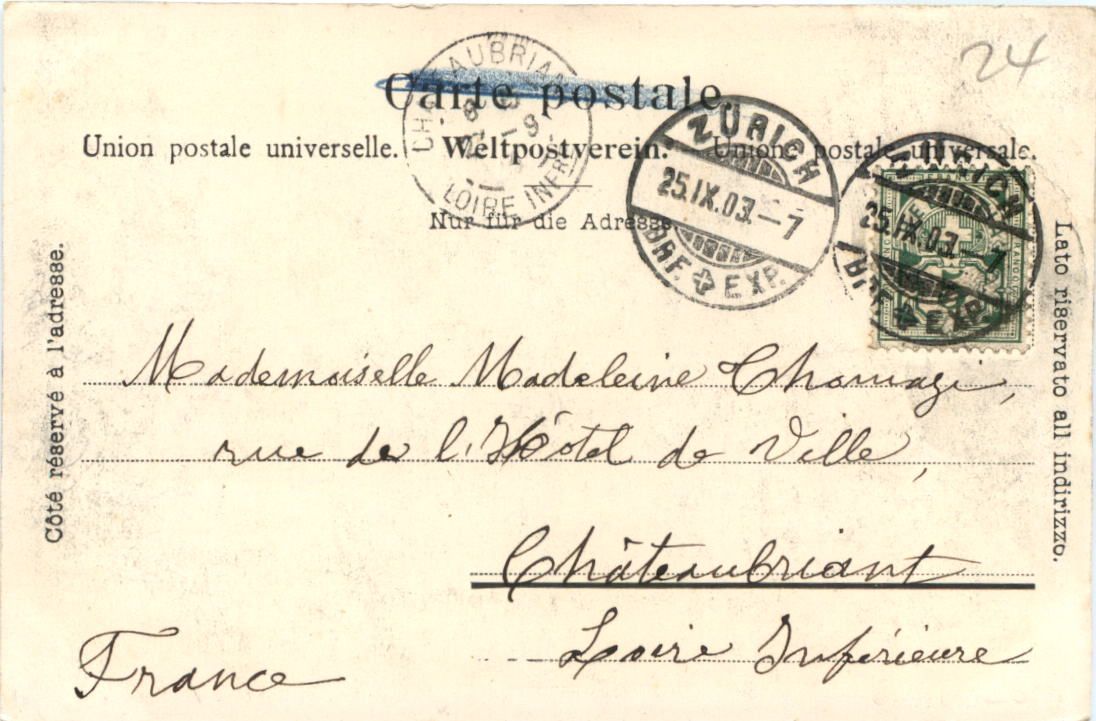 24
Carte postale
Union postale universelle. Weltpostverein. Unione postale universale.
Nur für die Adresse
CHATEAUBRIANT
LOIRE INFRE
ZÜRICH
25.IX.03.–7
BRF. EXP.
ZÜRICH
25.IX.03.–7
BRF. EXP.
Côté réservé à l'adresse.
Lato riservato all indirizzo.
Mademoiselle Madeleine
rue de l'Hôtel de Ville,
Châteaubriant
Loire Inférieure
France